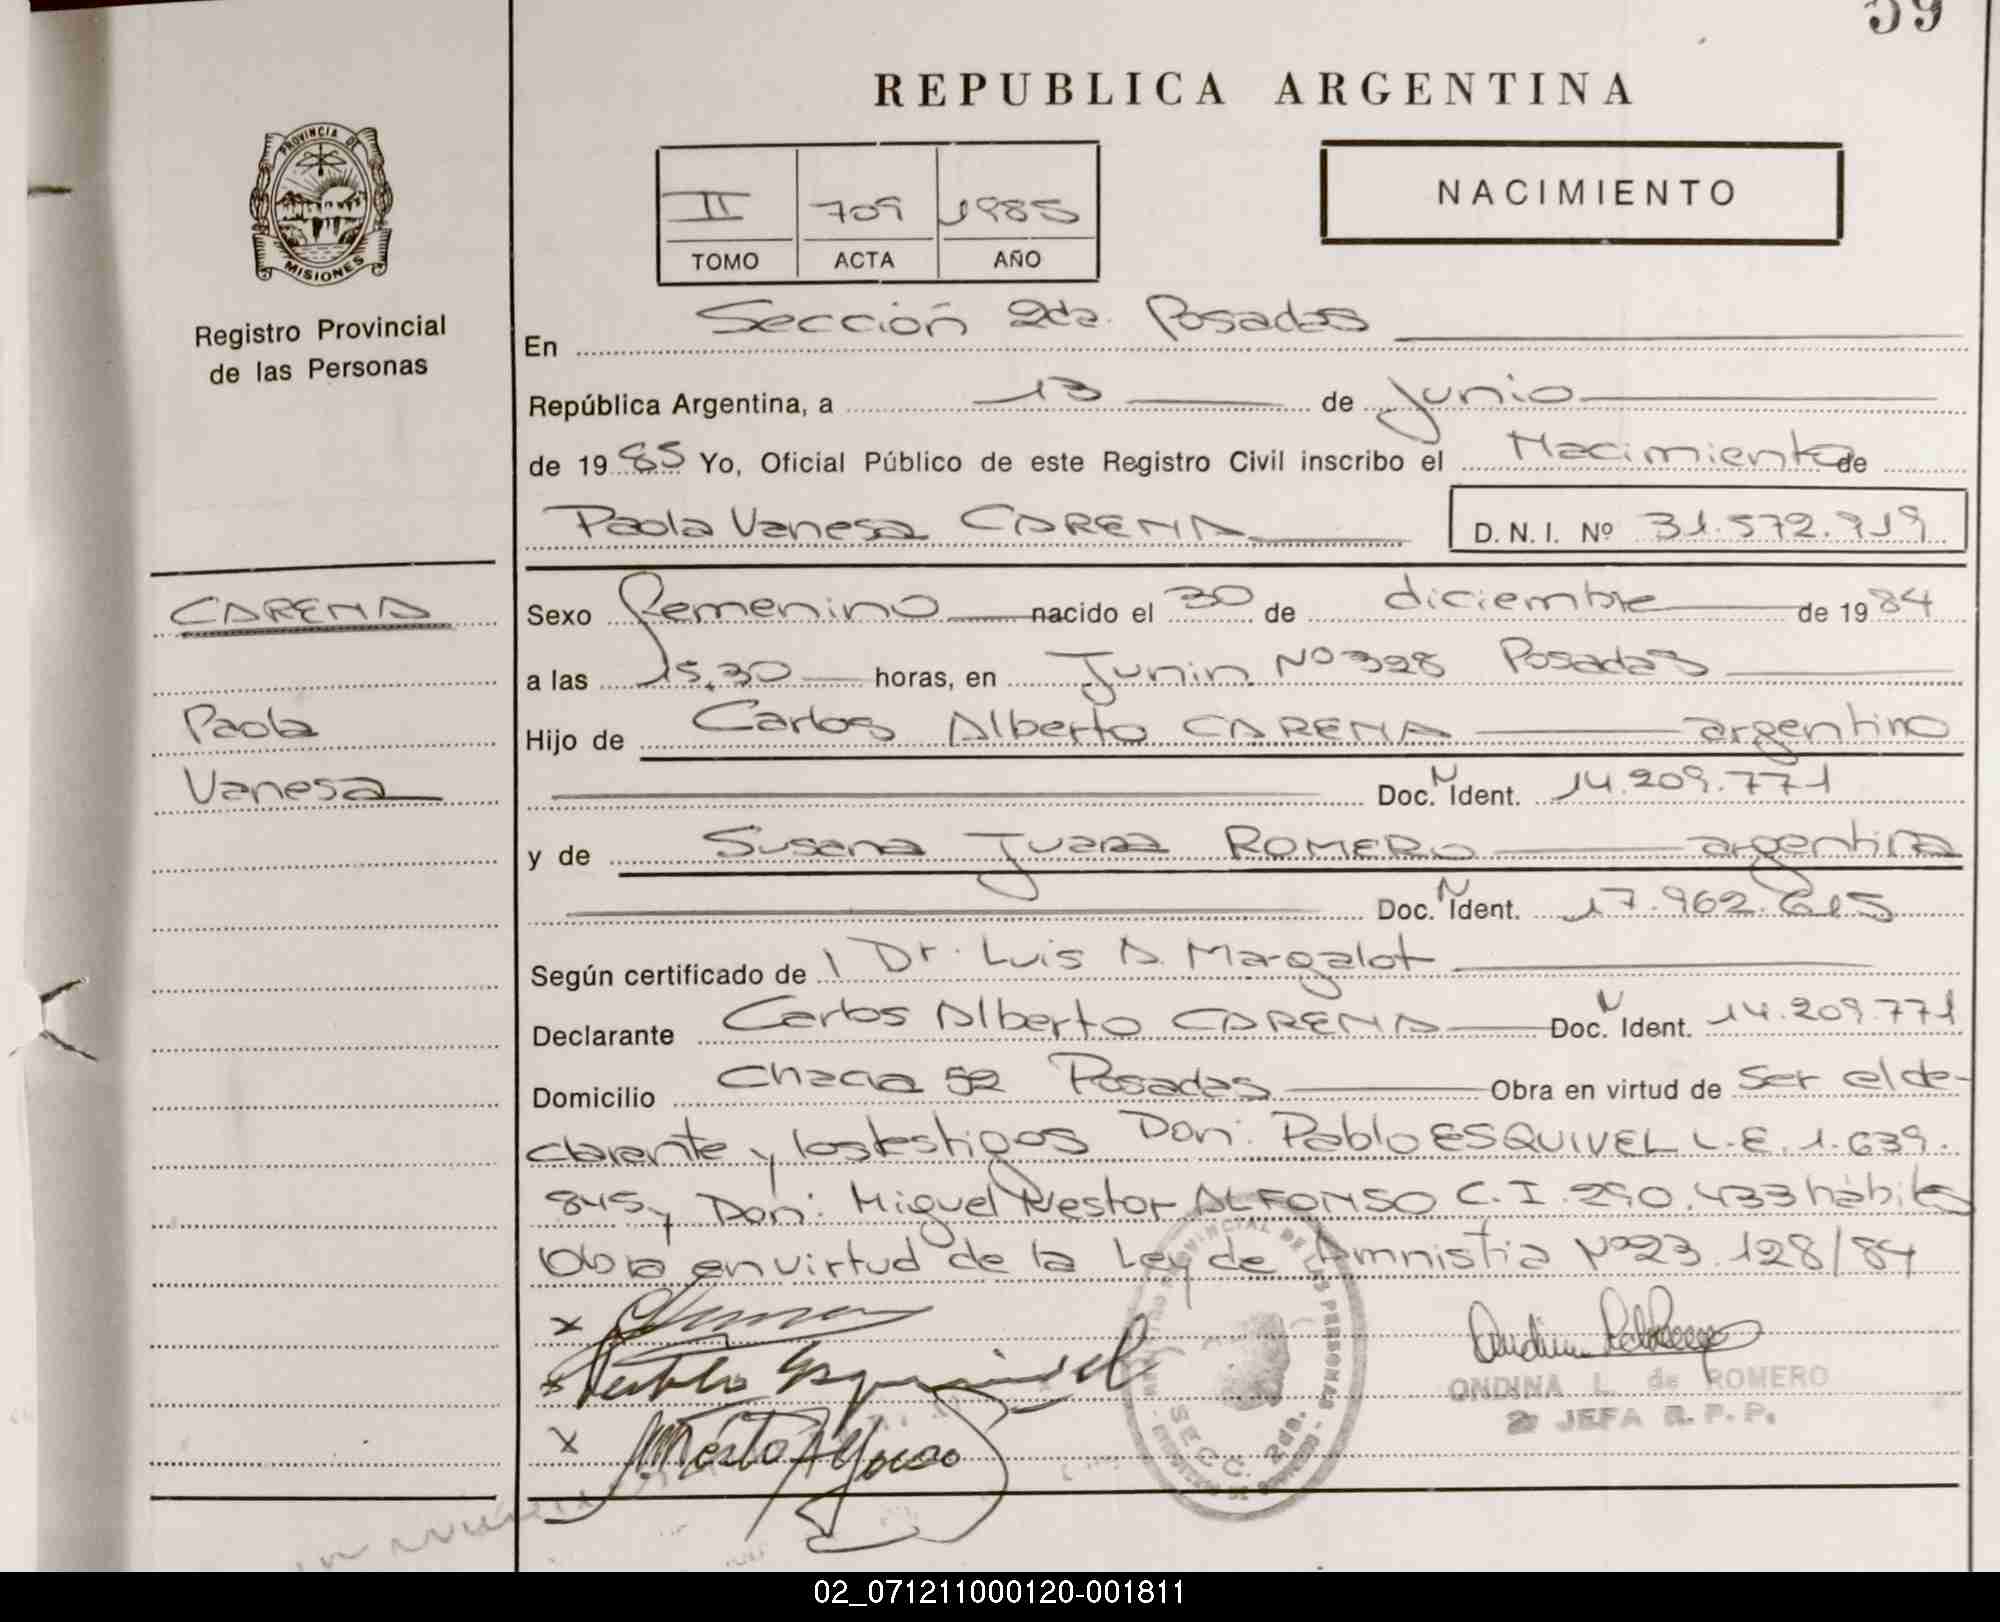 59
REPUBLICA ARGENTINA
PROVINCIA DE
MISIONES
Registro Provincial
de las Personas
II 709 1985
TOMO ACTA AÑO
NACIMIENTO
En Sección 2da. Posadas
República Argentina, a 13 de Junio
de 1985 Yo, Oficial Público de este Registro Civil inscribo el Nacimiento de
Paola Vanesa CARENA D.N.I. Nº 31.572.719
CARENA
Paola
Vanesa
Sexo femenino nacido el 30 de diciembre de 1984
a las 15,30 horas, en Junin Nº 328 Posadas
Hijo de Carlos Alberto CARENA argentino
Doc. N Ident. 14.209.771
y de Susana Juana ROMERO argentina
Doc. N Ident. 17.962.615
Según certificado de Dr. Luis A. Margalot
Declarante Carlos Alberto CARENA Doc. N Ident. 14.209.771
Domicilio Chacra 52 Posadas Obra en virtud de Ser el de-
clarante y los testigos Don: Pablo ESQUIVEL L.E. 1.639.
845 y Don: Miguel Nestor ALFONSO C.I. 290.433 hábiles
Obra en virtud de la Ley de Amnistia Nº 23.128/84
x
x Pablo Esquivel
x
SECC. 2da.
ONDINA L. de ROMERO
2º JEFA R.P.P.
02_071211000120-001811